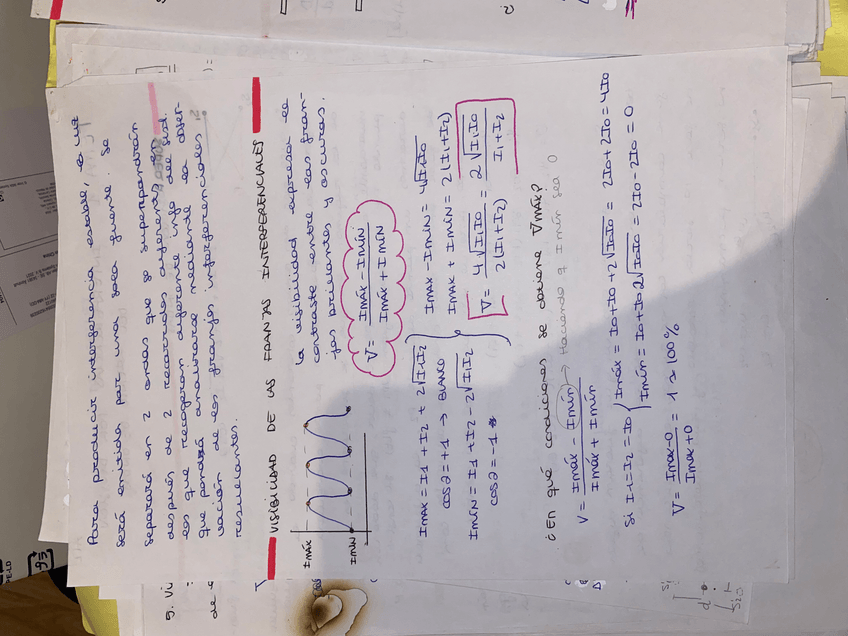 Para producir interferencia estable, la luz
será emitida por una sola fuente. Se
separará en 2 ondas que se superpondrán
después de 2 recorridos diferentes en
los que recogerán diferente info del sist.
que podrá analizarse mediante la obser-
vación de las franjas interferenciales
resultantes.
VISIBILIDAD DE LAS FRANJAS INTERFERENCIALES
Imáx
Imín
La visibilidad expresa el
contraste entre las fran-
jas brillantes y oscuras.
V = Imáx - Imín / Imáx + Imín
Imáx = I1 + I2 + 2√I1I2
cos ∂ = +1 → BLANCO
Imín = I1 + I2 - 2√I1I2
cos ∂ = -1
Imáx - Imín = 4√I1I0
Imáx + Imín = 2(I1+I2)
V = 4√I1I0 / 2(I1+I2) = 2√I1I0 / I1+I2
¿En qué condiciones se obtiene Vmáx?
V = Imáx - Imín / Imáx + Imín → Haciendo q Imín sea 0
Si I1=I2=I0 { Imáx = I0+I0+2√I0I0 = 2I0+2I0=4I0
Imín = I0+I0-2√I0I0 = 2I0-2I0=0
V = Imáx-0 / Imáx+0 = 1 ≈ 100%